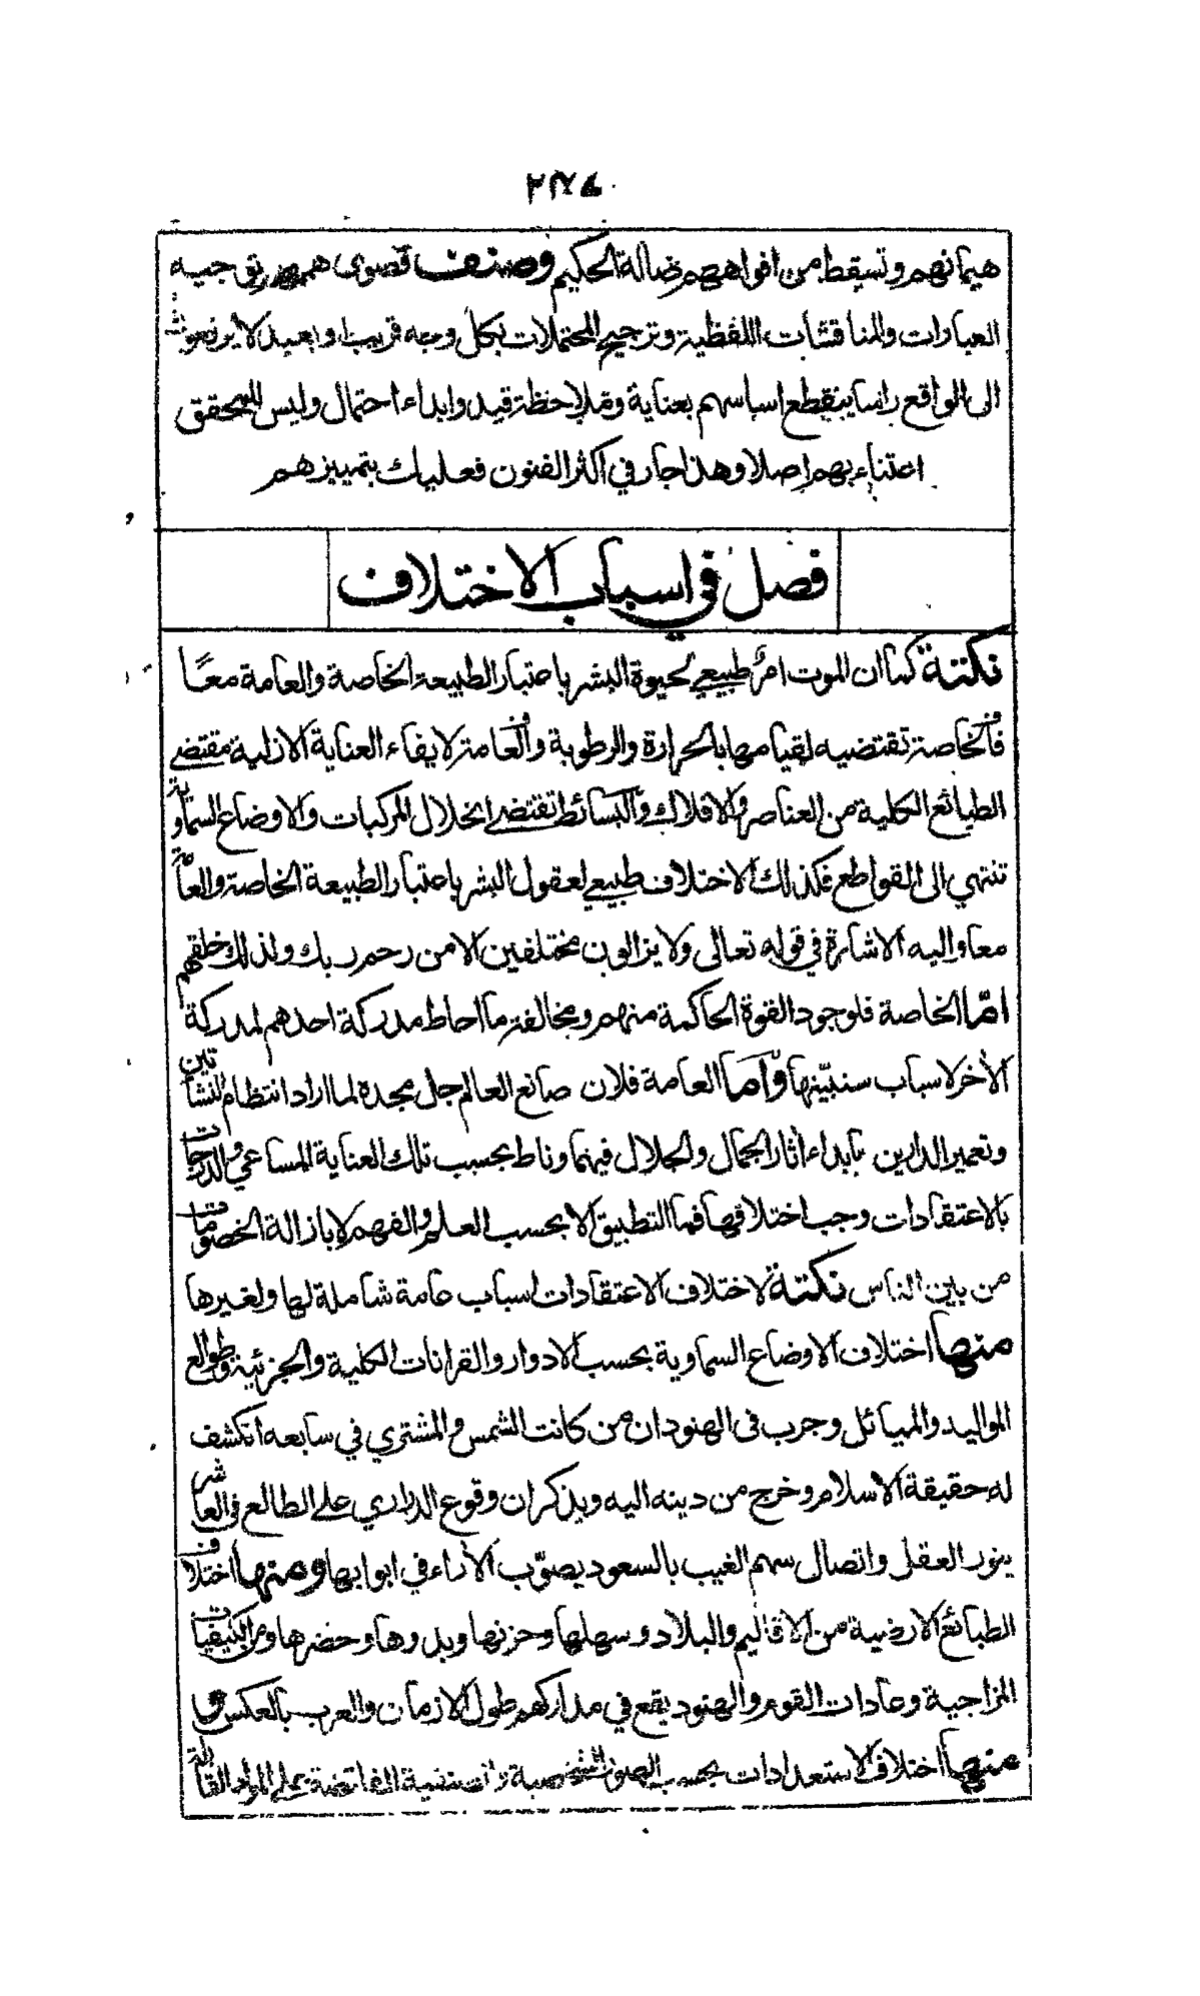 هيمانهم وتسقط من افواههم ضالة الحكيم وصنف قصوى هممهم توجيه
العبارات والمناقشات اللفظية وترجيح المحتملات بكل وجه قريب او بعيد لا يرفعون
الى الواقع راسا ينقطع اساسهم بعناية وملاحظة قيد وابداء احتمال وليس للمحقق
اعتناء بهم اصلا وهذا جار في اكثر الفنون فعليك بتمييزهم
فصل في اسباب الاختلاف
نكتة كما ان الموت امر طبيعي لحيوة البشر باعتبار الطبيعة الخاصة والعامة معًا
فالخاصة تقتضيه لقيامها بالحرارة والرطوبة والعامة لايفاء العناية الازلية مقتضى
الطبائع الكلية من العناصر والافلاك والبسائط تقتضى انحلال المركبات والاوضاع السماوية
تنتهي الى القواطع فكذلك الاختلاف طبيعي لعقول البشر باعتبار الطبيعة الخاصة والعامة
معا واليه الاشارة في قوله تعالى ولا يزالون مختلفين الا من رحم ربك ولذلك خلقهم
امّا الخاصة فلوجود القوة الحاكمة منهم ومخالفة ما احاط مدركة احدهم لمدركة
الأخر لاسباب سنبيّنها وأما العامة فلان صانع العالم جل مجده لما اراد انتظام النشأتين
وتعمير الدارين بابداء أثار الجمال والجلال فيهما وناط بحسب تلك العناية المساعي والدرجات
بالاعتقادات وجب اختلافها فما التطبيق الا بحسب العلم والفهم لا بازالة الخصومات
من بين الناس نكتة لاختلاف الاعتقادات اسباب عامة شاملة لها ولغيرها
منها اختلاف الاوضاع السماوية بحسب الادوار والقرانات الكلية والجزئية وطوالع
المواليد والميائل وجرب في الهنود ان من كانت الشمس والمشتري في سابعه انكشف
له حقيقة الاسلام وخرج من دينه اليه ويذكر ان وقوع الدراري على الطالع في العاشر
ينور العقل واتصال سهم الغيب بالسعود يصوّب الأراء في ابوابها ومنها اختلاف
الطبائع الارضية من الاقاليم والبلاد وسهلها وحزنها وبدوها وحضرها ومن الكيفيات
المزاجية وعادات القوم والهنود يقع في مداركهم طول الازمان والعرب بالعكس و
منها اختلاف الاستعدادات بحسب الصور الشخصية والصنفية الفائضة على المواد القابلة